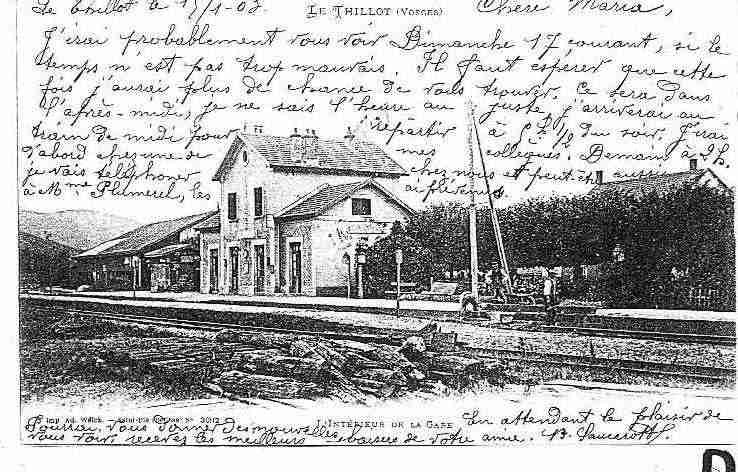 Le Thillot le 15/1-03
LE THILLOT (VOSGES)
Chère Maria,
J'irai probablement vous voir Dimanche 17 courant, si le
temps n'est pas trop mauvais. Il faut espérer que cette
fois j'aurai plus de chance de vous trouver. Ce sera dans
l'après-midi, je ne sais l'heure au juste j'arriverai au
train de midi pour repartir à 5h 1/2 du soir. J'irai
d'abord chez une de mes collègues. Demain à 2h.
je vais téléphoner chez nous et peut-êt aussi
à Mme Plumerel, les
L'INTÉRIEUR DE LA GARE
En attendant le plaisir de
vous voir, recevez les meilleurs baisers de votre amie.